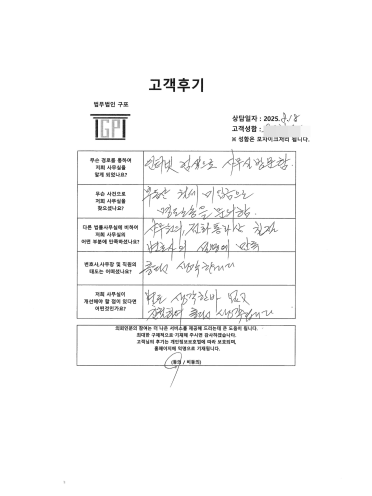 고객후기
법무법인 구포
IGPI
상담일자 : 2025. 8. 18
고객성함 :
※ 성함은 모자이크처리 됩니다.
무슨 경로를 통하여
저희 사무실을
알게 되었나요?
인터넷 검색으로 사무실 방문함.
무슨 사건으로
저희 사무실을
찾으셨나요?
부동산 월세 미입금으로
명도소송을 문의함.
다른 법률사무실에 비하여
저희 사무실의
어떤 부분에 만족하셨나요?
사무원의, 전화통화상 친절
변호사의 설명에 만족
변호사,사무장 및 직원의
태도는 어떠셨나요?
생각합니다
저희 사무실이
개선해야 할 점이 있다면
어떤것인가요?
별로 생각한바 없고
생각합니다
의뢰인분의 참여는 더 나은 서비스를 제공해 드리는데 큰 도움이 됩니다.
최대한 구체적으로 기재해 주시면 감사하겠습니다.
고객님의 후기는 개인정보보호법에 따라 보호되며,
홈페이지에 익명으로 기재됩니다.
(동의 / 비동의)